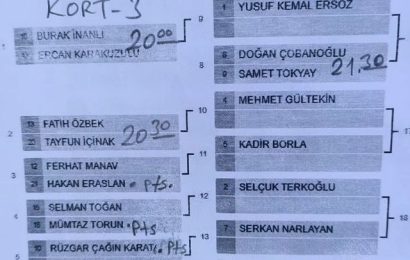 KORT-3
BURAK İNANLI
ERCAN KARAKUZULU
20 00
9
13 FATİH ÖZBEK
20 TAYFUN İÇİNAK
20 30
10
2
12 FERHAT MANAV
21 HAKAN ERASLAN . Pts.
11
3
15 SELMAN TOĞAN
18 MÜMTAZ TORUN . Pts
12
4
10 RÜZGAR ÇAĞIN KARATA. Pts
13
5
1 YUSUF KEMAL ERSÖZ
8 DOĞAN ÇOBANOĞLU
9 SAMET TOKYAY
21.30
9
8
4 MEHMET GÜLTEKİN
5 KADİR BORLA
2 SELÇUK TERKOĞLU
7 SERKAN NARLAYAN
18